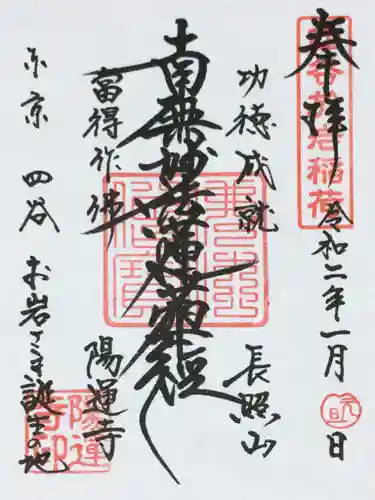 奉拝
令和二年一月
元旦
日
功徳成就
長照山
南無妙法蓮華経
當得作佛
陽運寺
東京 四谷 お岩さま誕生の地
陽運寺印